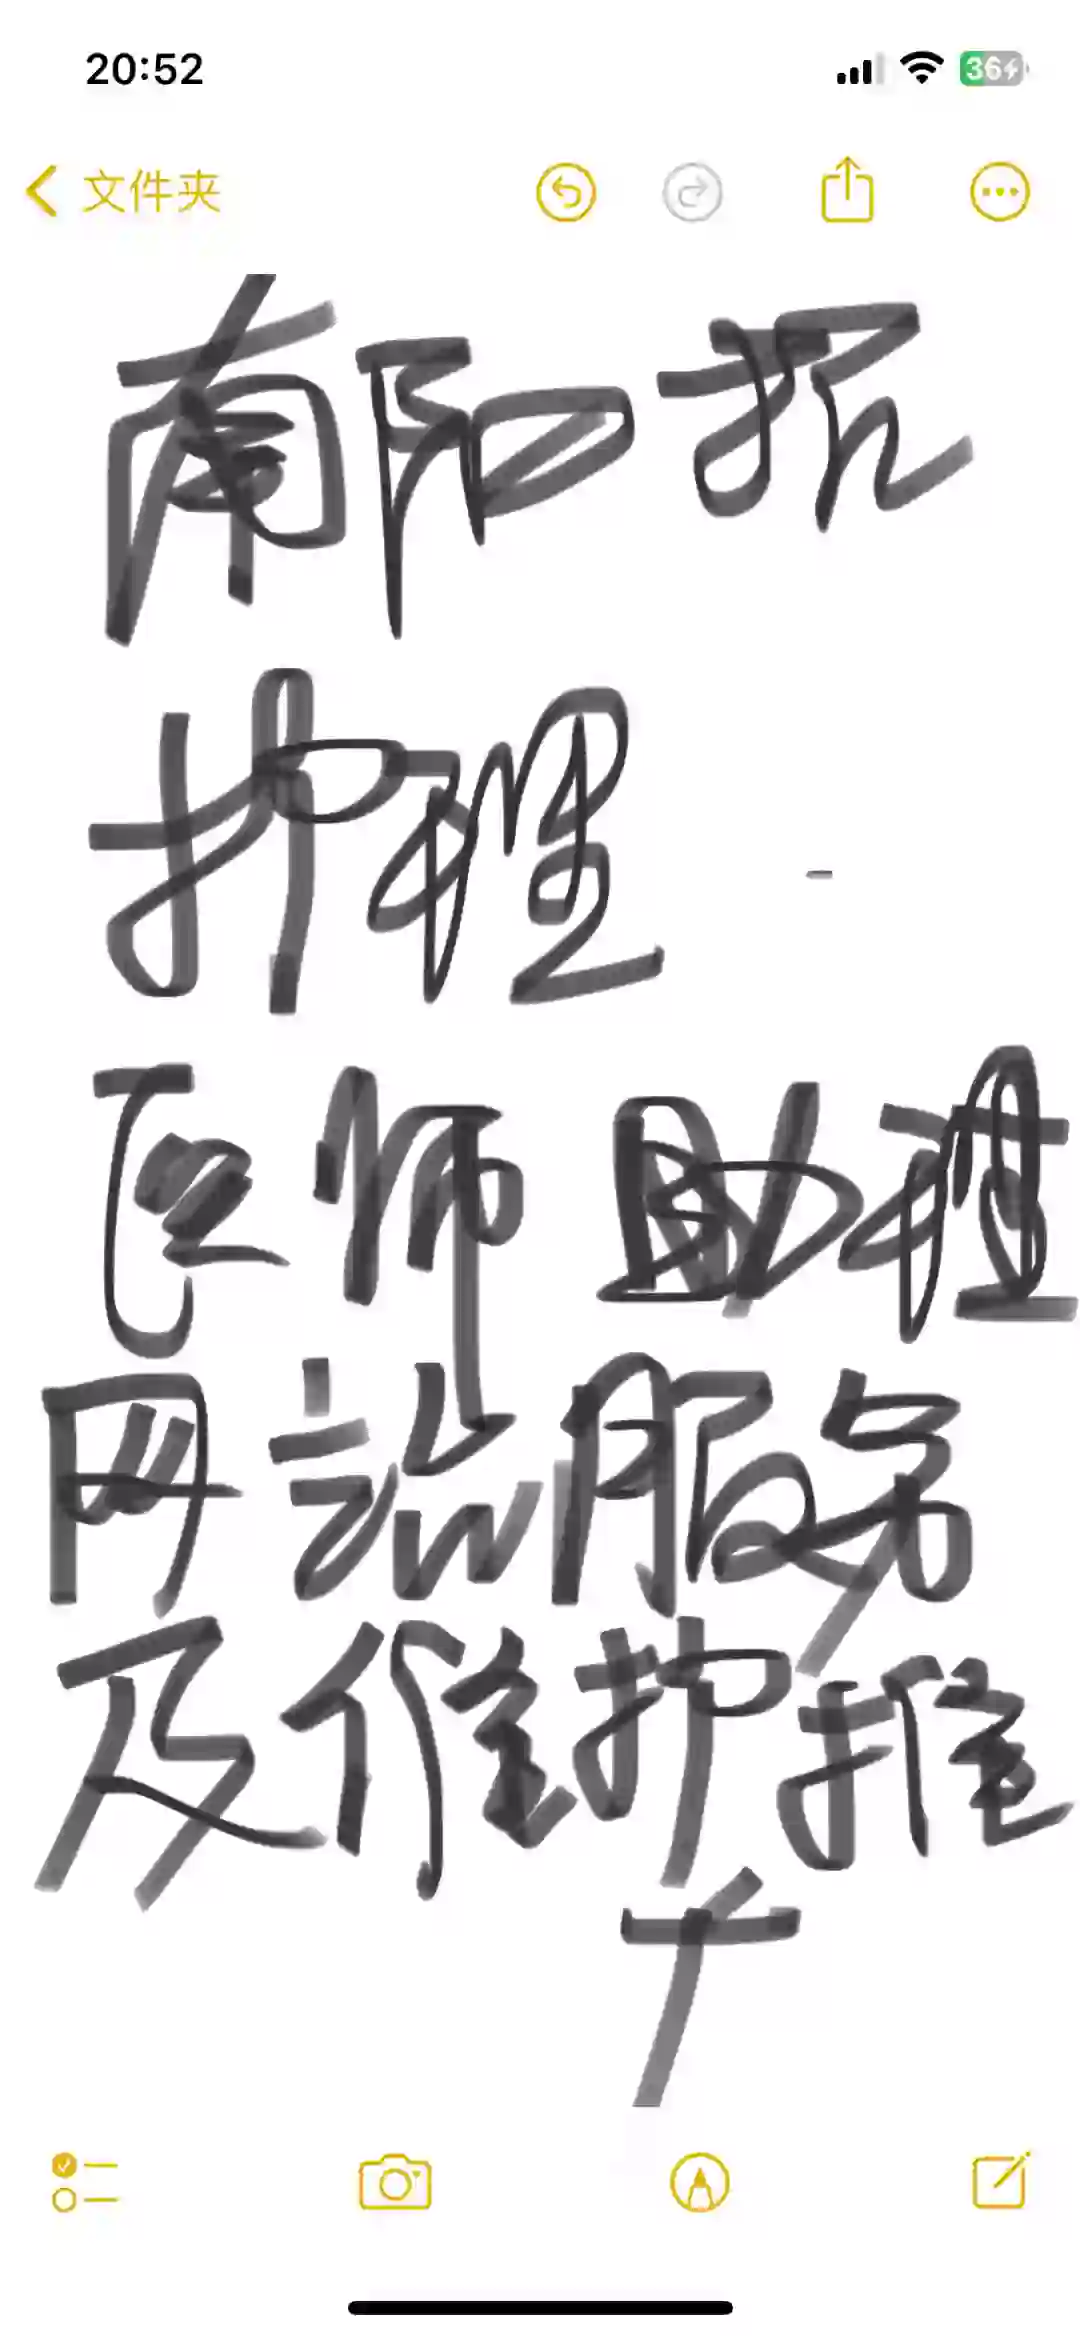 20:52
36
文件夹
南阳招
护理
医师 助理
网站服务
及维护推
广